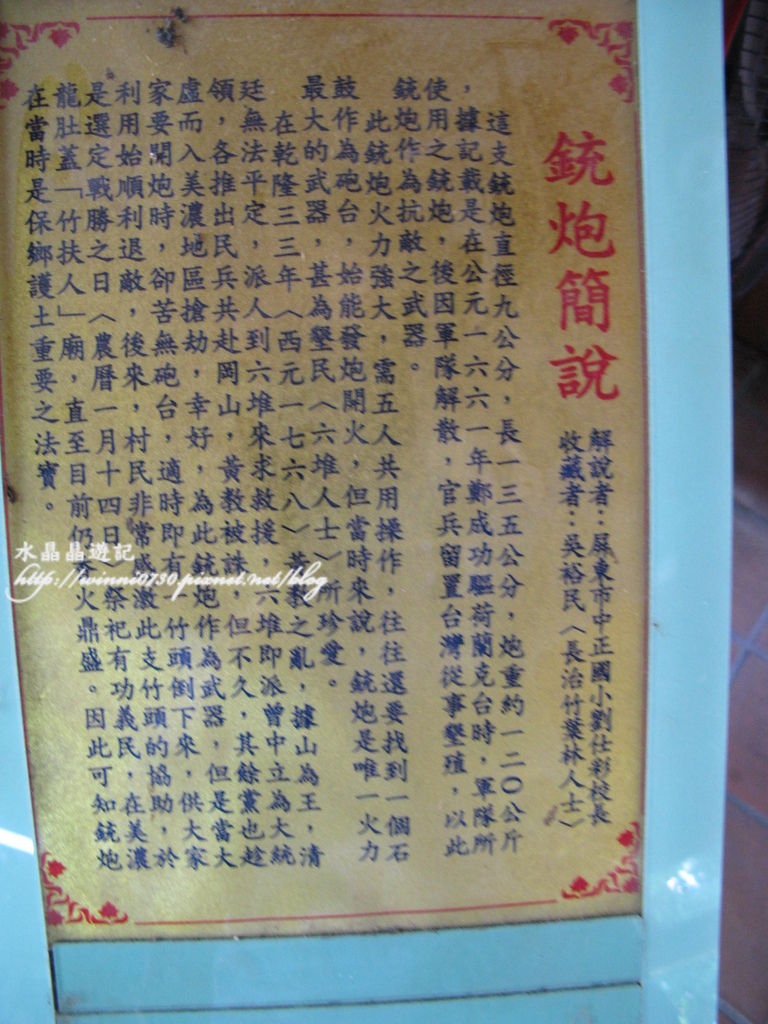 銃炮簡說
解說者：屏東市中正國小劉仕彩校長
收藏者：吳裕民（長治竹葉林人士）
這支銃炮直徑九公分，長一三五公分，炮重約一二○公斤
，據記載是在公元一六六一年鄭成功驅荷蘭克台時，軍隊所
使用之銃炮，後因軍隊解散，官兵留置台灣從事墾殖，以此
銃炮作為抗敵之武器。
此銃炮火力強大，需五人共用操作，往往還要找到一個石
鼓作為砲台，始能發炮開火，但當時來說，銃炮是唯一火力
最大的武器，甚為墾民（六堆人士）所珍愛。
在乾隆三三年（西元一七六八）黃教之亂，據山為王，清
廷無法平定，派人到六堆來求救援，六堆即派曾中立為大統
領，各推出民兵共赴岡山，黃教被誅，但不久，其餘黨也趁
虛而入美濃地區搶劫，幸好，為此銃炮作為武器，但是當大
家要開炮時，卻苦無砲台，適時即有一竹頭倒下來，供大家
利用始順利退敵，後來，村民非常感激此支竹頭的協助，於
是選定戰勝之日（農曆一月十四日）祭祀有功義民，在美濃
龍肚蓋「竹扶人」廟，直至目前仍香火鼎盛。因此可知銃炮
在當時是保鄉護土重要之法寶。
水晶晶遊記
http://winni0730.pixnet.net/blog